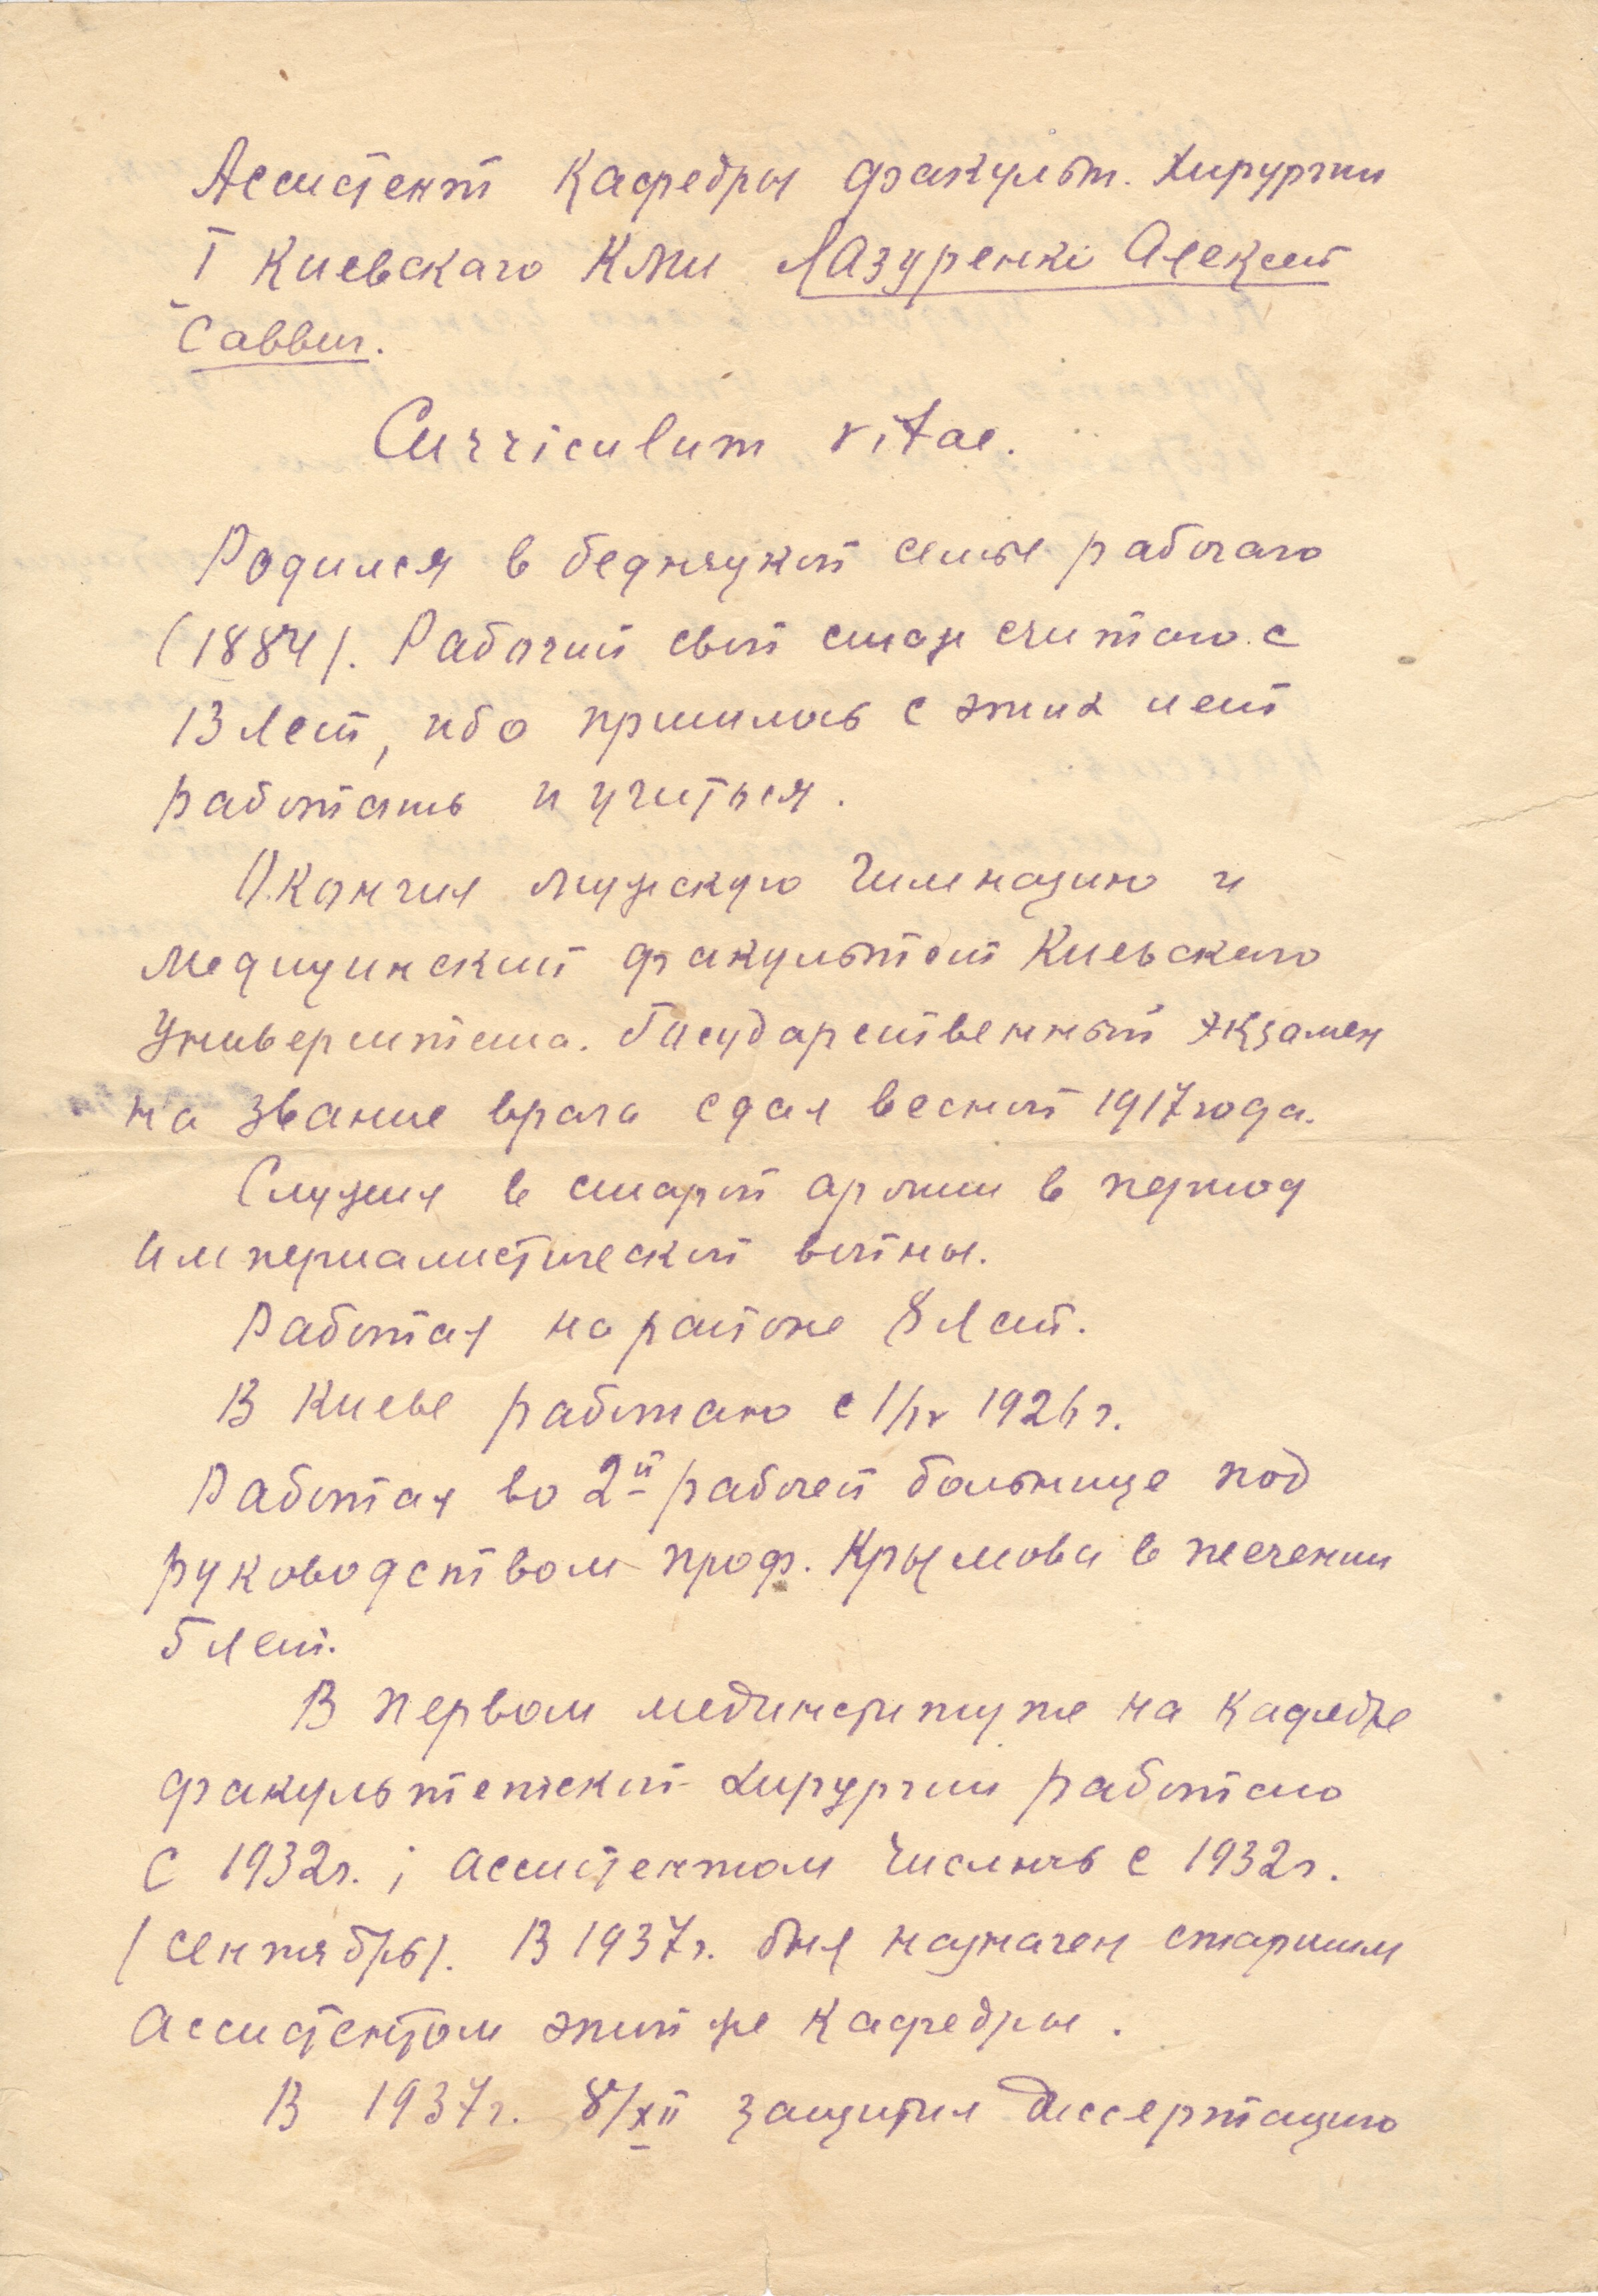 Ассистент Кафедры факульт. Хирургии
I Киевскаго КМИ Лазуренко Алексей
Саввич.
Curriculum vitae.
Родился в бедняцкой семье рабочаго
(1884). Рабочий свой стаж считаю с
13 лет, ибо пришлось с этих лет
работать и учиться.
Окончил мужскую Гимназию и
Медицинский факультет Киевскаго
Университета. Государственный экзамен
на звание врача сдал весной 1917 года.
Служил в старой армии в период
Империалистической войны.
Работал на районе 8 лет.
В Киеве работаю с 1/IV 1926 г.
Работал во 2й рабочей больнице под
руководством проф. Крымова в течении
5 лет.
В первом мединституте на Кафедре
факультетской Хирургии работаю
с 1932г.; ассистентом числюсь с 1932г.
(сентябрь). В 1937г. был назначен старшим
Ассистентом этой же Кафедры.
В 1937г. 8/XII защитил Диссертацию